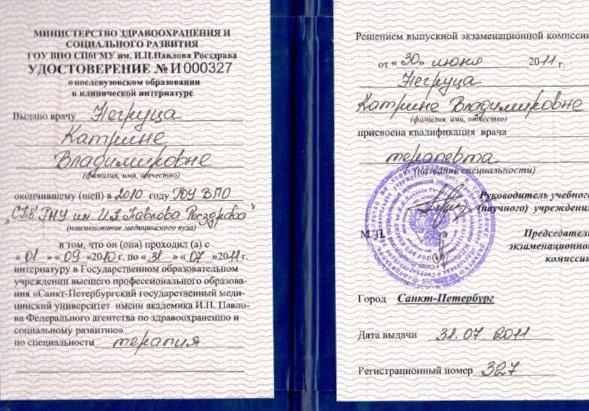 МИНИСТЕРСТВО ЗДРАВООХРАНЕНИЯ И
СОЦИАЛЬНОГО РАЗВИТИЯ
ГОУ ВПО СПбГМУ им. И.П.Павлова Росздрава
УДОСТОВЕРЕНИЕ № И 000327
о послевузовском образовании
в клинической интернатуре
Выдано врачу Негруца
Катрине
Владимировне
(фамилия, имя, отчество)
окончившему (шей) в 2010 году ГОУ ВПО
им И.П. Павлова Росздрава"
(наименование медицинского вуза)
в том, что он (она) проходил (а) с
« 01 » « 09 »2010г. по « 31 » « 07 »2011г.
интернатуру в Государственном образовательном
учреждении высшего профессионального образова-
ния «Санкт-Петербургский государственный меди-
цинский университет имени академика И.П. Павло-
ва Федерального агентства по здравоохранению и
социальному развитию»
по специальности терапия
Решением выпускной экзаменационной комисси
от « 30 » июня 2011 г.
Негруца
Катрине Владимировне
(фамилия, имя, отчество)
присвоена квалификация врача
терапевта
(название специальности)
Руководитель учебног
(научного) учреждени
М.П.
Председатель
экзаменационно
комисси
Город Санкт-Петербург
Дата выдачи 31.07 2011
Регистрационный номер 327